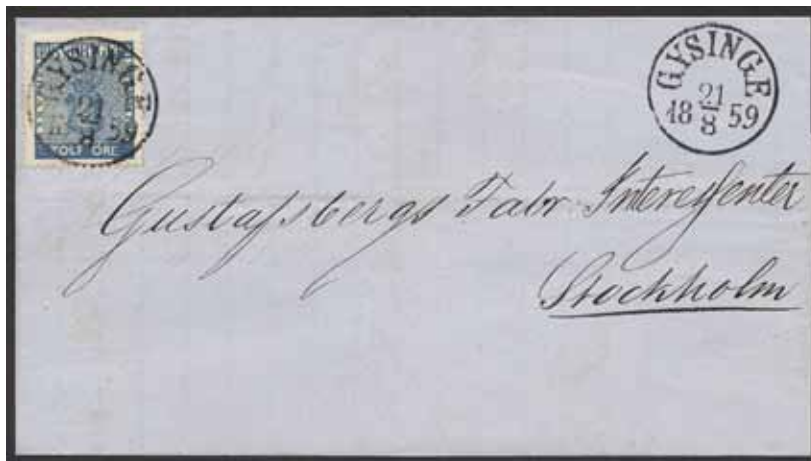 GYSINGE
21
8
59
TOLF ÖRE
GYSINGE
21
18 59
8
Gustafsbergs Fabr. Interessenter
Stockholm